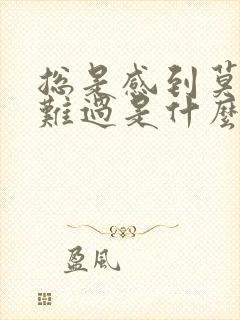 总是感到莫
難過是什麼
盈風